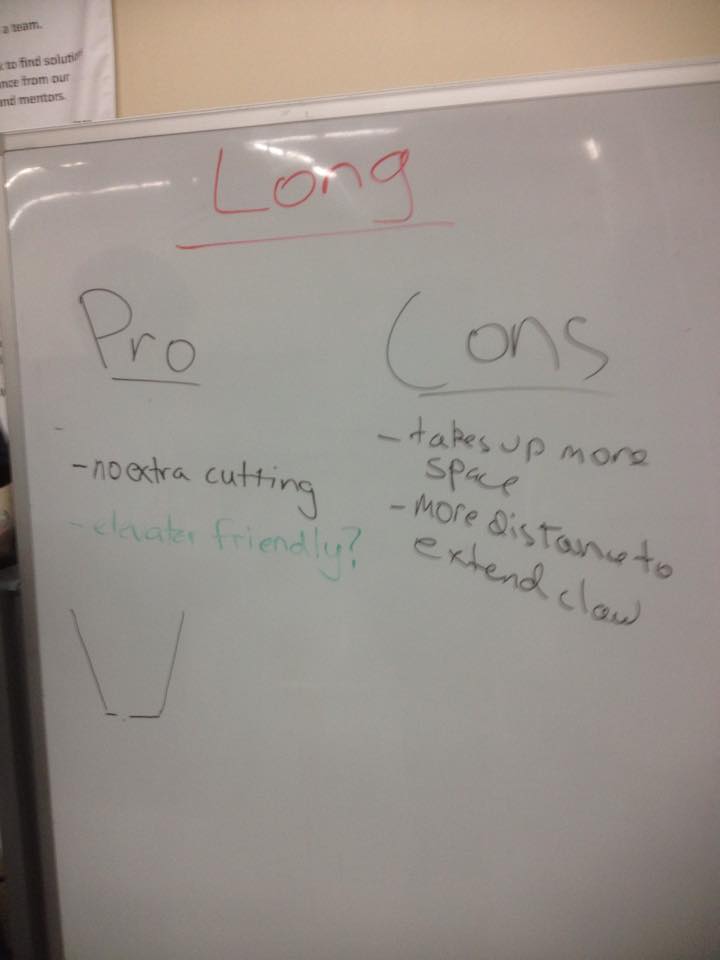 a team.
to find soluti
nce from our
nd mentors.
Long
Pro
- no extra cutting
- elevater friendly?
Cons
- takes up more
space
- more distance to
extend claw